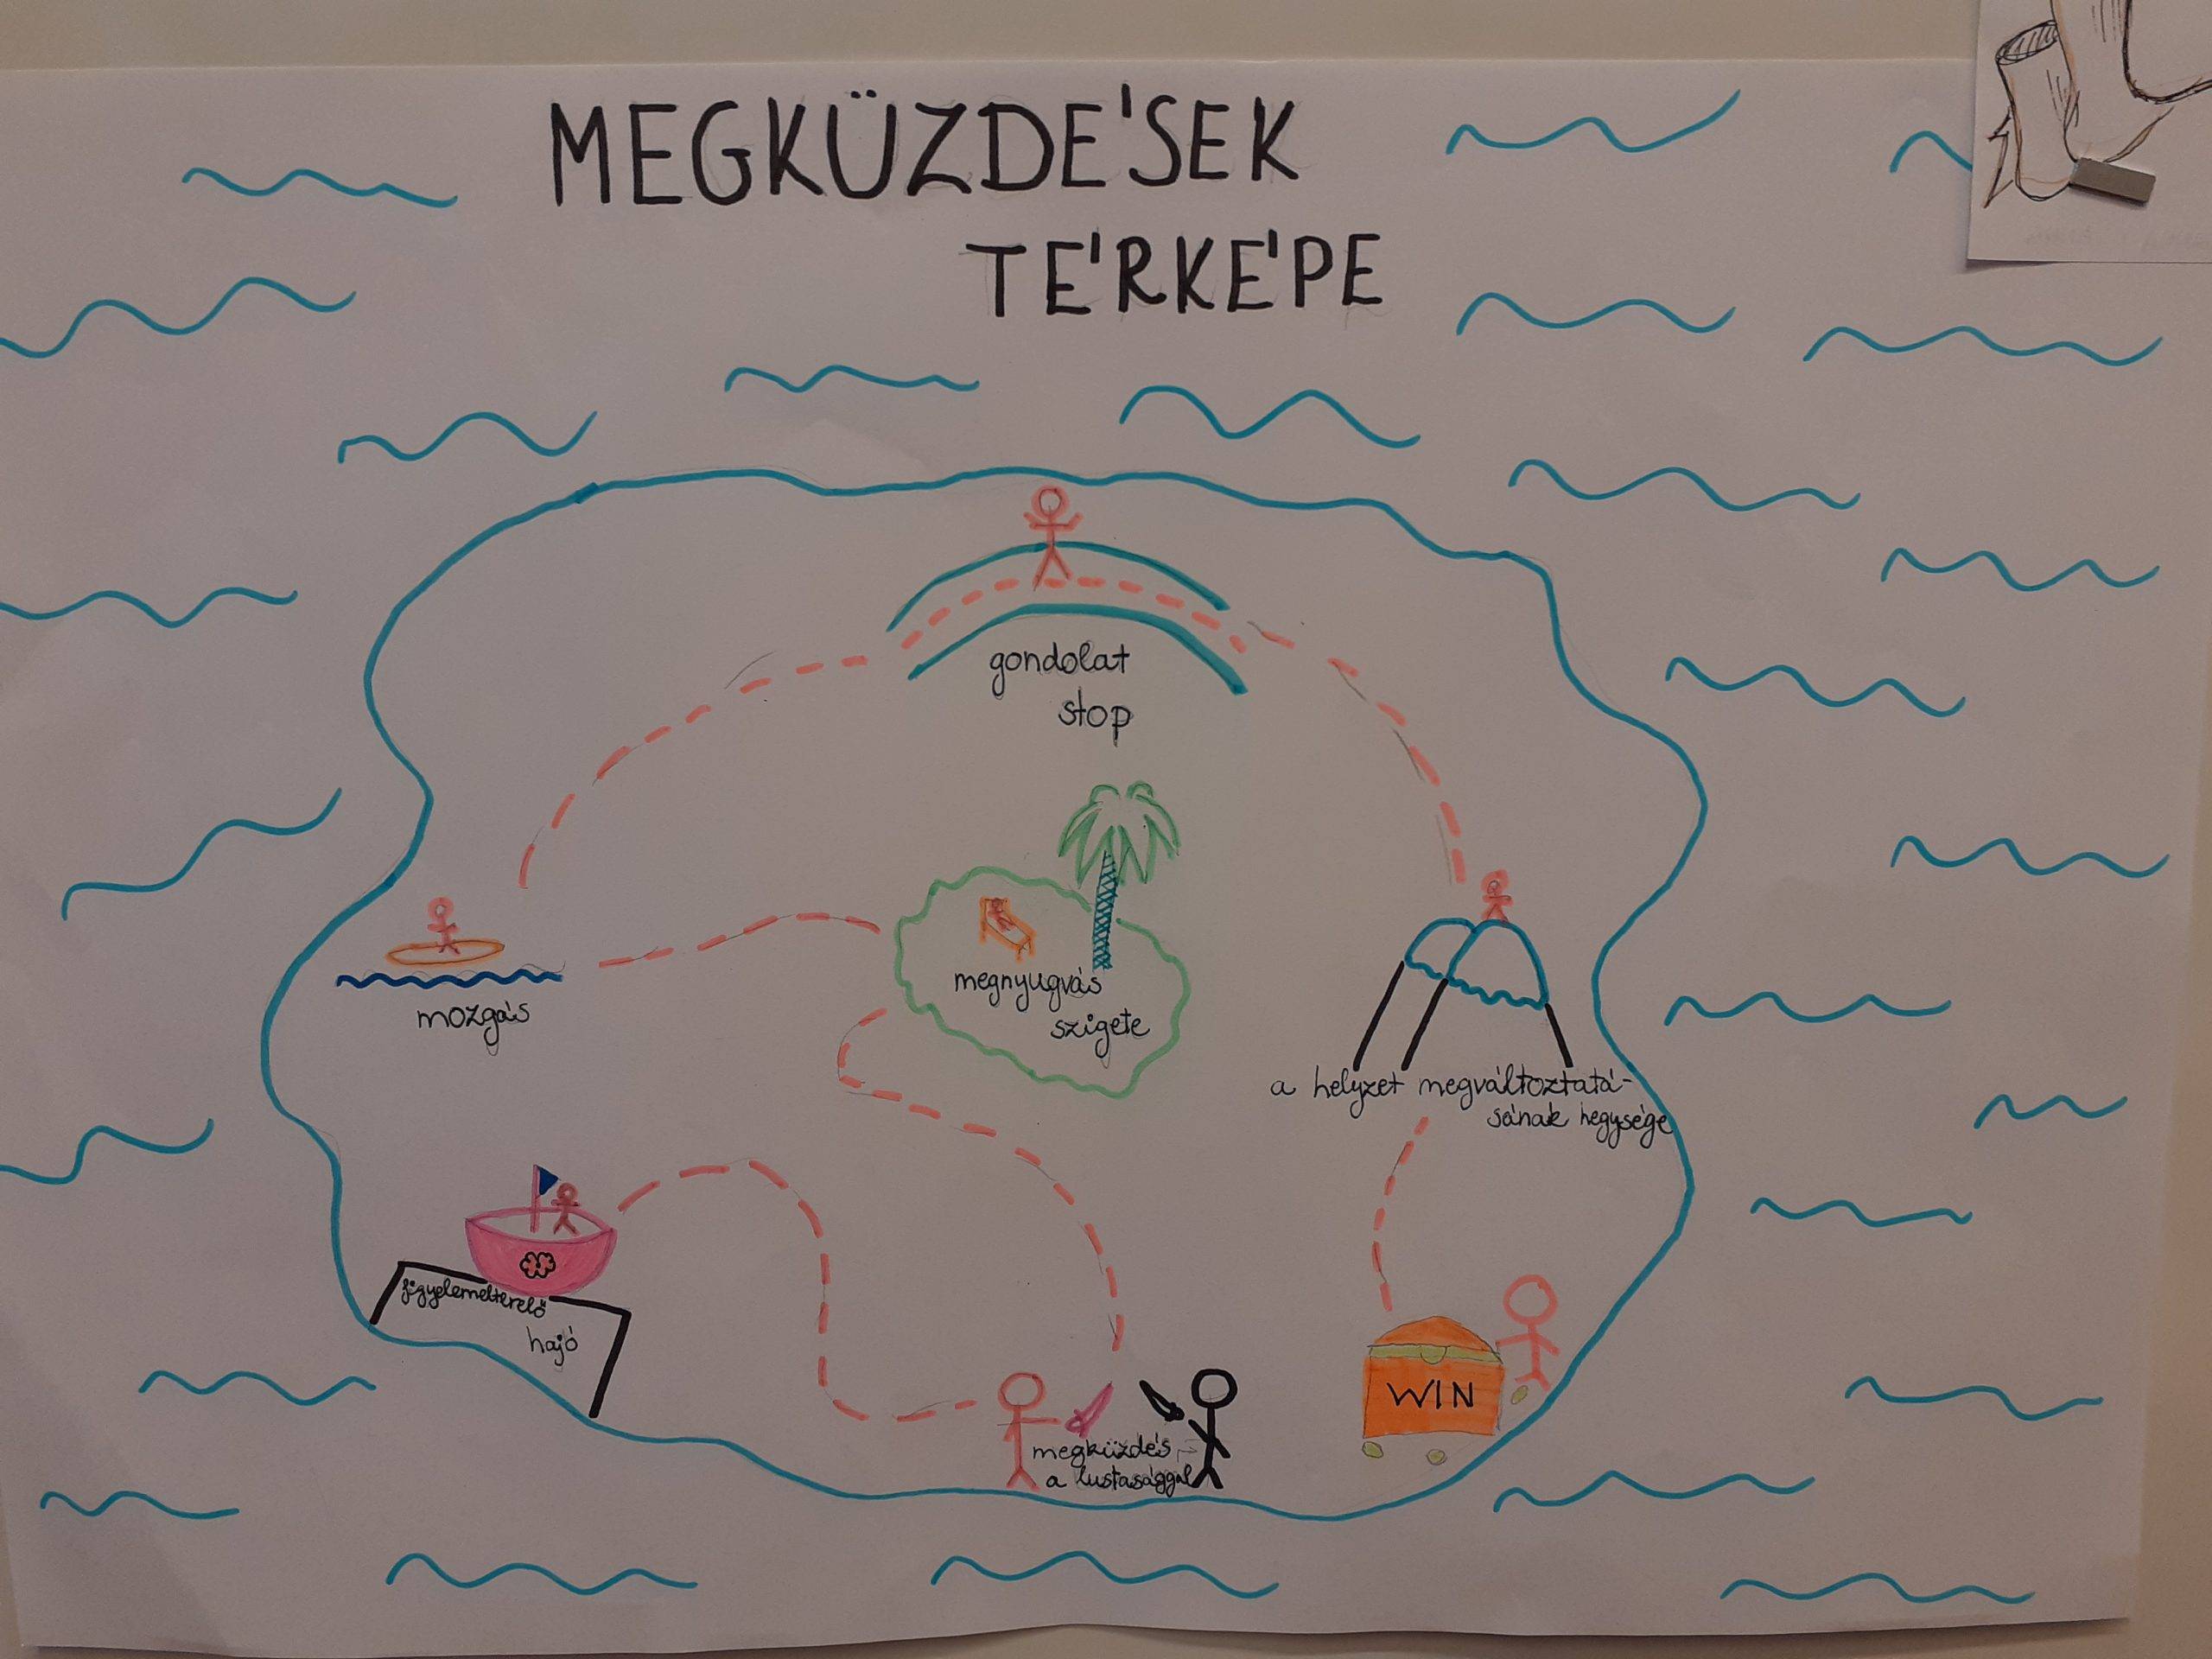 MEGKÜZDÉSEK
TÉRKÉPE
gondolat
stop
megnyugvás
szigete
mozgás
a helyzet megváltoztatá-
sának hegysége
figyelemelterelő
hajó
megküzdés
a lustasággal
WIN